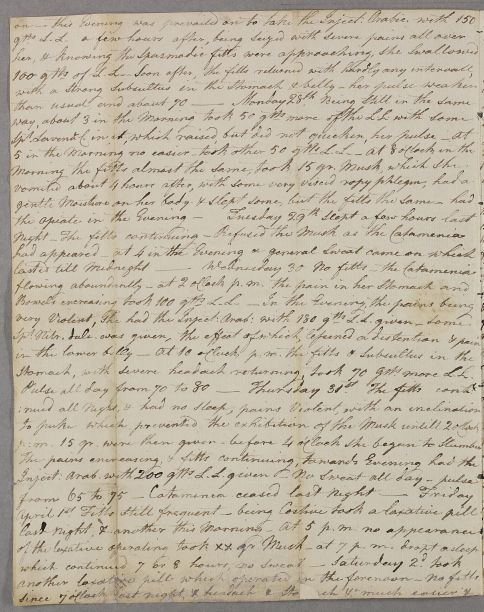 on — this Evening was prevailed on to take the Inject: Arabic: with 150
gtts L.L. a few hours after, being Seized with Severe pains all over
her, & Knowing the Spasmodic fitts were approaching, She Swallowed
100 gtts of L.L. Soon after, the fitts returned with hardly any intervall,
with a Strong Subsultus in the Stomach & belly — her pulse weaker
than usual and about 90 — Monday 28th Being Still in the Same
way, about 3 in the Morning took 50 gtts more of the LL with Some
Spt Lavend: C in it, which raised but did not quicken, her pulse — at
5 in the Morning no easier, took other 50 gtts L.L. — at 8 oClock in the
Morning the fitts almost the Same, took 15 gr. Musk, which She
vomited about 4 hours after, with Some very viscid ropy phlegm, had a
gentle Moisture on her body & Slept Some, but the fitts the Same — had
the Opiate in the Evening — Tuesday 29th Slept a few hours last
Night — The fitts continuing — Refused the Musk as the Catamenia
had appeared — at 4 in the Evening a general Sweat came on which
lasted till Midnight — Wednesday 30 No fitts — the Catamenia
flowing aboundently — at 2 oClock p.m. the pain in her Stomach and
Bowels encreasing took 100 gtts L.L. — In the Evening, the pains being
very Violent, She had the Inject: Arab: with 130 gtts L.L. given — Some
Spt Nitr. dulc was given, the effect of which, a distention & pain
in the lower belly — At 10 oClock p.m. the fitts & Subsultus in the
Stomach, with Severe headach returning, took 70 gtts more L.L.
Pulse all day from 70 to 80 — Thursday 31st The fitts conti=
:nued all Night, & had no Sleep, pains Violent, with an inclination
to puke which prevented the exhibition of the Musk untill 2 oClock
p:m. 15 gr. were then given — before 4 oClock She began to Slumber
The pains encreasing, & fitts continuing, towards Evening had the
Inject: Arab. with 200 gtts L.L. given it No Sweat all day — pulse
from 65 to 75 — Catamenia ceased last Night — Friday
April 1st Fitts Still frequent — being Costive took a laxative pill
last Night, & another this Morning. At 5 p.m. no appearance
of the laxative operating took xx gr Musk — at 7 p.m. dropt asleep
which continued 7 or 8 hours, no Sweat — Saturday 2d took
another laxative pill which operated in the forenoon — No fitts
Since 7 oClock last night, & headach & much easier &